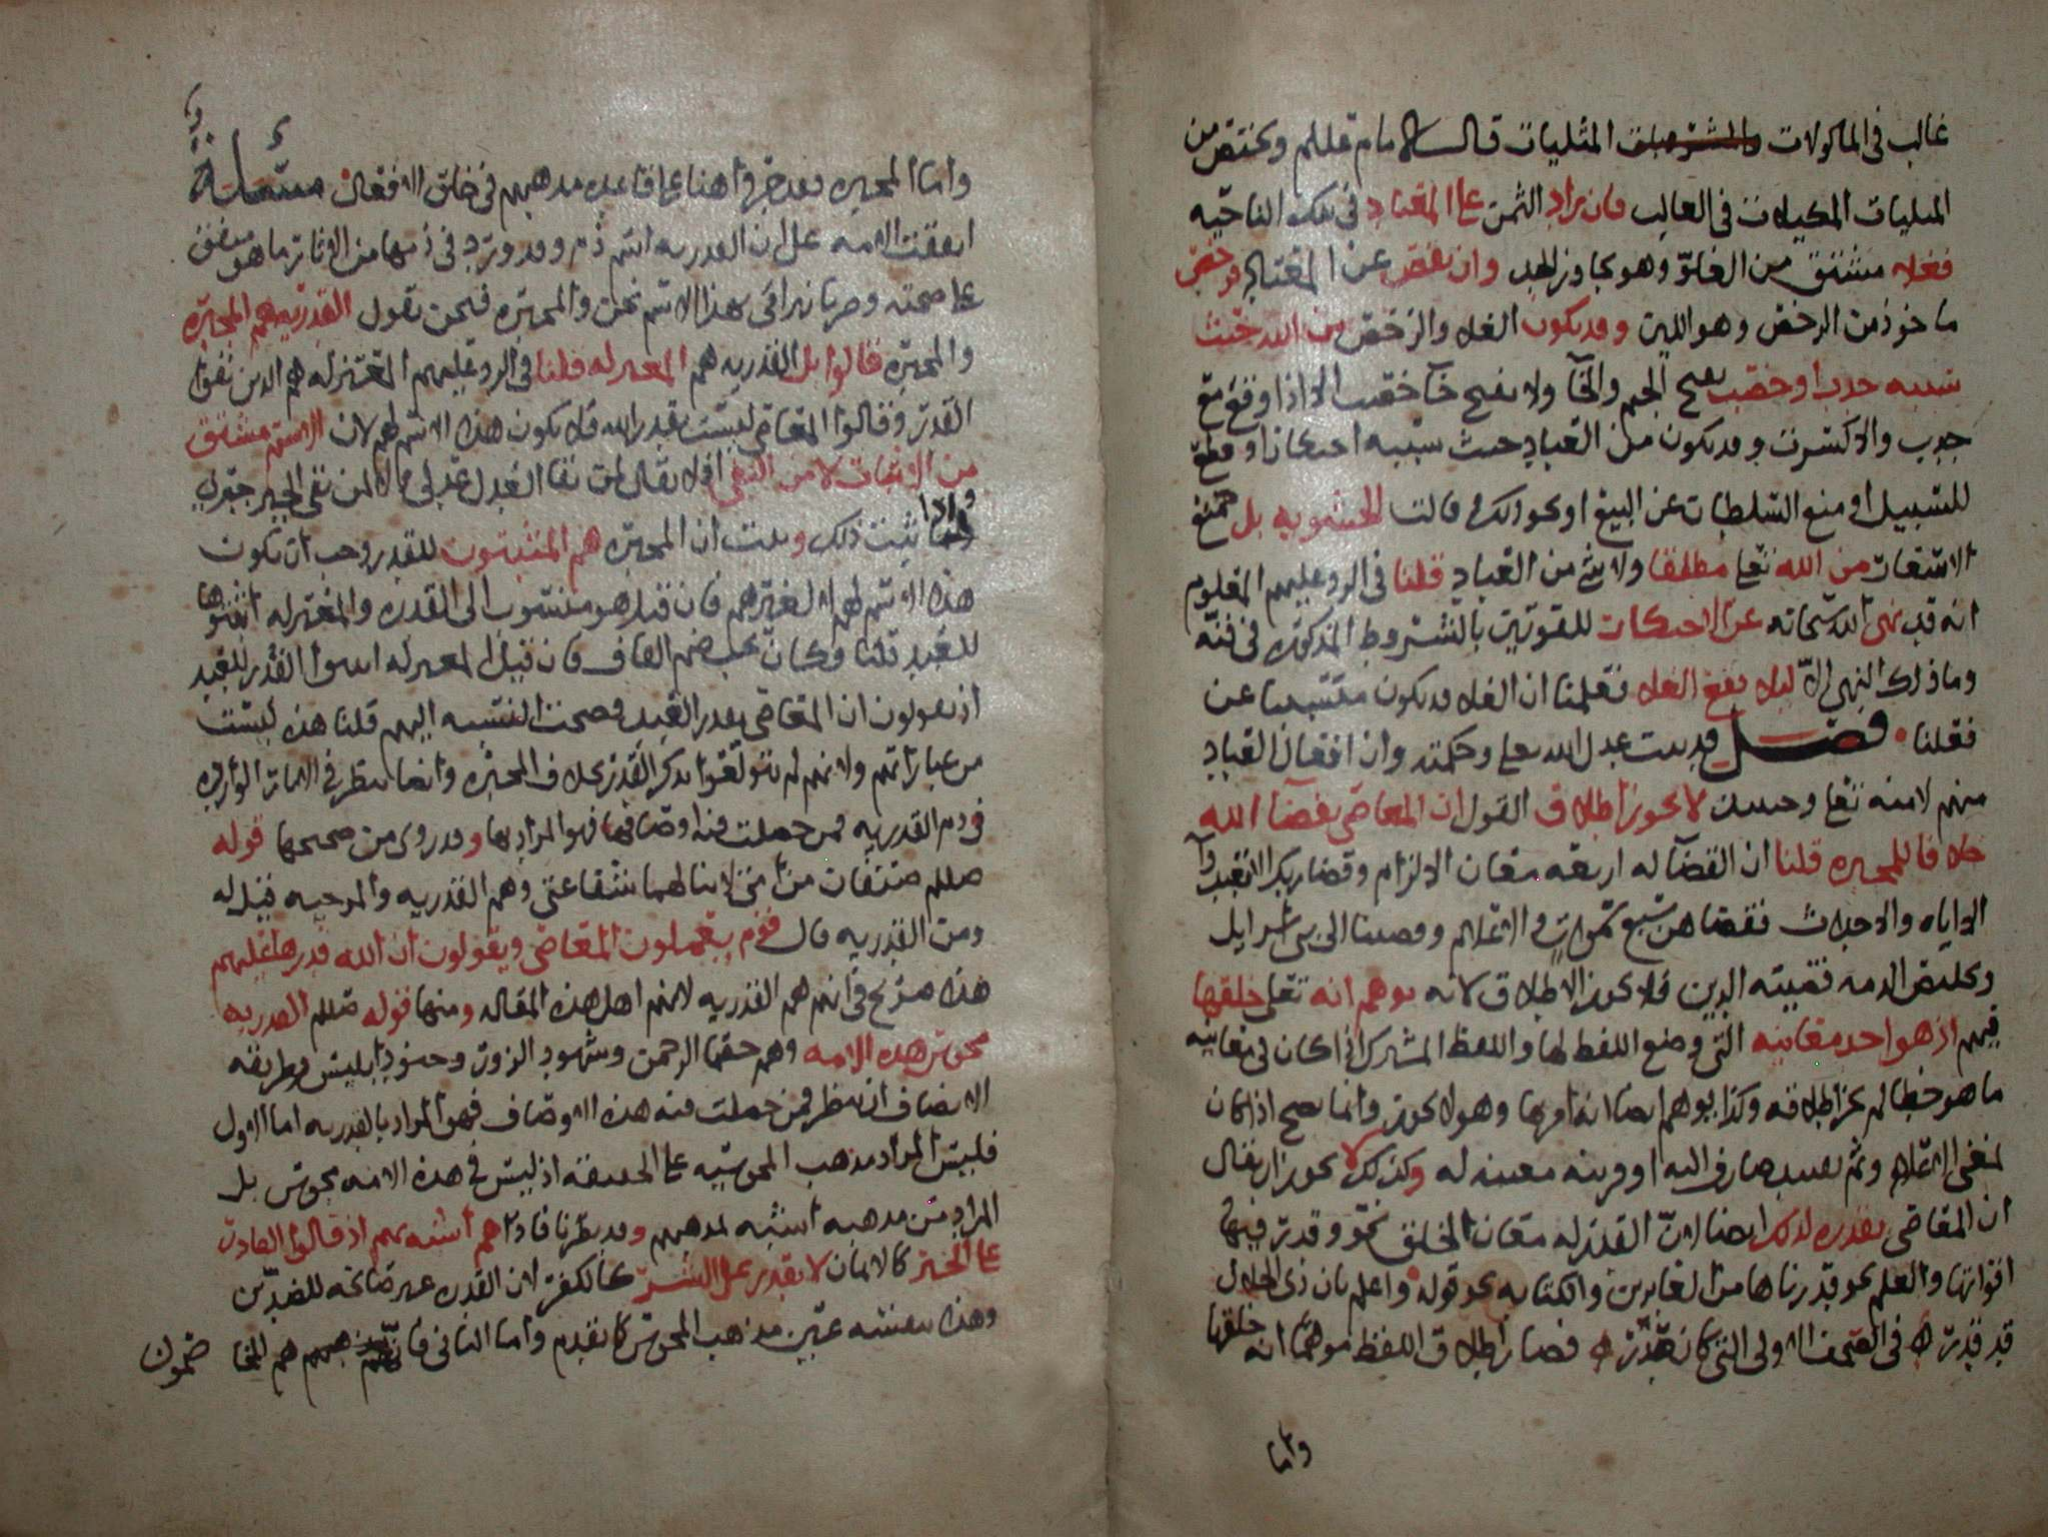 غالب في الماكولات المثليات قال الامام قللم ويختص من
المثليات المكيلات في الغالب فان زاد الثمن على المعتاد في تلك الناحيه
فغلاء مشتق من الغلو وهو تجاوز الحد وان نقص عن المعتاد فرخص
ماخوذ من الرخص وهو اللين وقد يكون الغلاء والرخص من الله حيث
سببه جدب او خصب بفتح الجيم والخآ ولا يفتح خآ خصب الا اذا وقع مع
جدب والا كسرت وقد يكون من العباد حيث سببه احتكار او قطع
للسبيل او منع السلطان عن البيع او نحو ذلك وقالت الحشويه بل جميع
الاسعار من الله تعلى مطلقا ولا شي من العباد قلنا في الرد عليهم المعلوم
انه قد نهى الله سبحانه عن الاحتكار للقوتين بالشروط المذكوره في فنه
وما ذلك النهي الا ليلا يقع الغلاء فعلمنا ان الغلاء قد يكون متسببا عن
فعلنا فصل قد ثبت عدل الله تعلى وحكمته وان افعال العباد
منهم لا منه تعلى وحينئذ لا يجوز اطلاق القول ان المعاصي بقضآ الله
خلافا للمجبره قلنا ان القضآ له اربعه معان الالزام وقضا ربك الا تعبدوآ
الا اياه والاحداث فقضاهن سبع سموات والاعلام وقضينا الى بني اسرايل
وتخليص الذمه قضيته الدين فلا يجوز الاطلاق لانه يوهم انه تعلى خلقها
فيهم اذ هو احد معانيه التي وضع اللفظ لها واللفظ المشترك اذا كان في معانيه
ما هو خطا لم يجز اطلاقه وكذا يوهم ايضا انه امر بها وهو لا يجوز وانما يصح اذا كان
بمعنى الاعلام وثم تقييد صارف اليه او قرينه معينه له وكذلك لا يجوز ان يقال
ان المعاصي بقدره لذلك ايضا لان القدر له معان الخلق نحو وقدر فيها
اقواتها والعلم نحو قدرناها من الغابرين والكتابه نحو قوله واعلم بان ذي الجلال
قد قدر في الصحف الاولى التي كان قدر فصار اطلاق اللفظ موهما انه خلقها
واما
واما المجبره فقد جروا هنا على قاعده مذهبهم في خلق الافعال مسئلة
اتفقت الامه على ان القدريه اسم ذم وقد ورد في ذمها من الاثار ما هو متفق
على صحته وصرنا نترامى بهذا الاسم نحن والمجبره فنحن نقول القدريه هم المجبره
والمجبره قالوا بل القدريه هم المعتزله قلنا في الرد عليهم المعتزله هم الذين نفوا
القدر وقالوا المعاصي ليست بقدر الله فلا يكون هذا الاسم لهم لان الاسم مشتق
من الاثبات لا من النفي فلا يقال لمن نفا العدل عدلي ولا لمن نفى الجبر جبري
واذا ثبت ذلك وثبت ان المجبره هم المثبتون للقدر وجب ان يكون
هذا الاسم لهم لا لغيرهم فان قيل هو منسوب الى القدره والمعتزله اثبتوها
للعبد قلنا فكان يجب ضم القاف فان قيل المعتزله اثبتوا القدر للعبد
اذ يقولون ان المعاصي بقدر العبد فصحت النسبه اليهم قلنا هذه ليست
من عباراتهم ولانهم لم يتولعوا بذكر القدر بخلاف المجبره وايضا ننظر في الامارات الوارده
في ذم القدريه فمن حصلت فيه اوصافها فهو المراد بها وقد روي من صحيحها قوله
صللم صنفان من امتي لا تنالهما شفاعتي وهم القدريه والمرجيه قيل له
ومن القدريه قال قوم يعملون المعاصي ويقولون ان الله قدرها عليهم
هذا صريح في انهم هم القدريه لانهم اهل هذه المقاله ومنها قوله صللم القدريه
مجوس هذه الامه وهم خصما الرحمن وشهود الزور وجنود ابليس وطريقه
الانصاف ان ننظر فمن حصلت فيه هذه الاوصاف فهو المراد بالقدريه اما الاول
فليس المراد مذهب المجوسيه على الحقيقه اذ ليس في هذه الامه مجوس بل
المراد من مذهبه اشبه بمذهبهم وقد نظرنا فاذا هم اشبه بهم اذ قالوا القادر
على الخير كالايمان لا يقدر على الشر كالكفر لان القدره غير صالحه للضدين
وهذا بعينه عين مذهب المجوس كما تقدم واما الثاني فانهم هم المخا
صمون